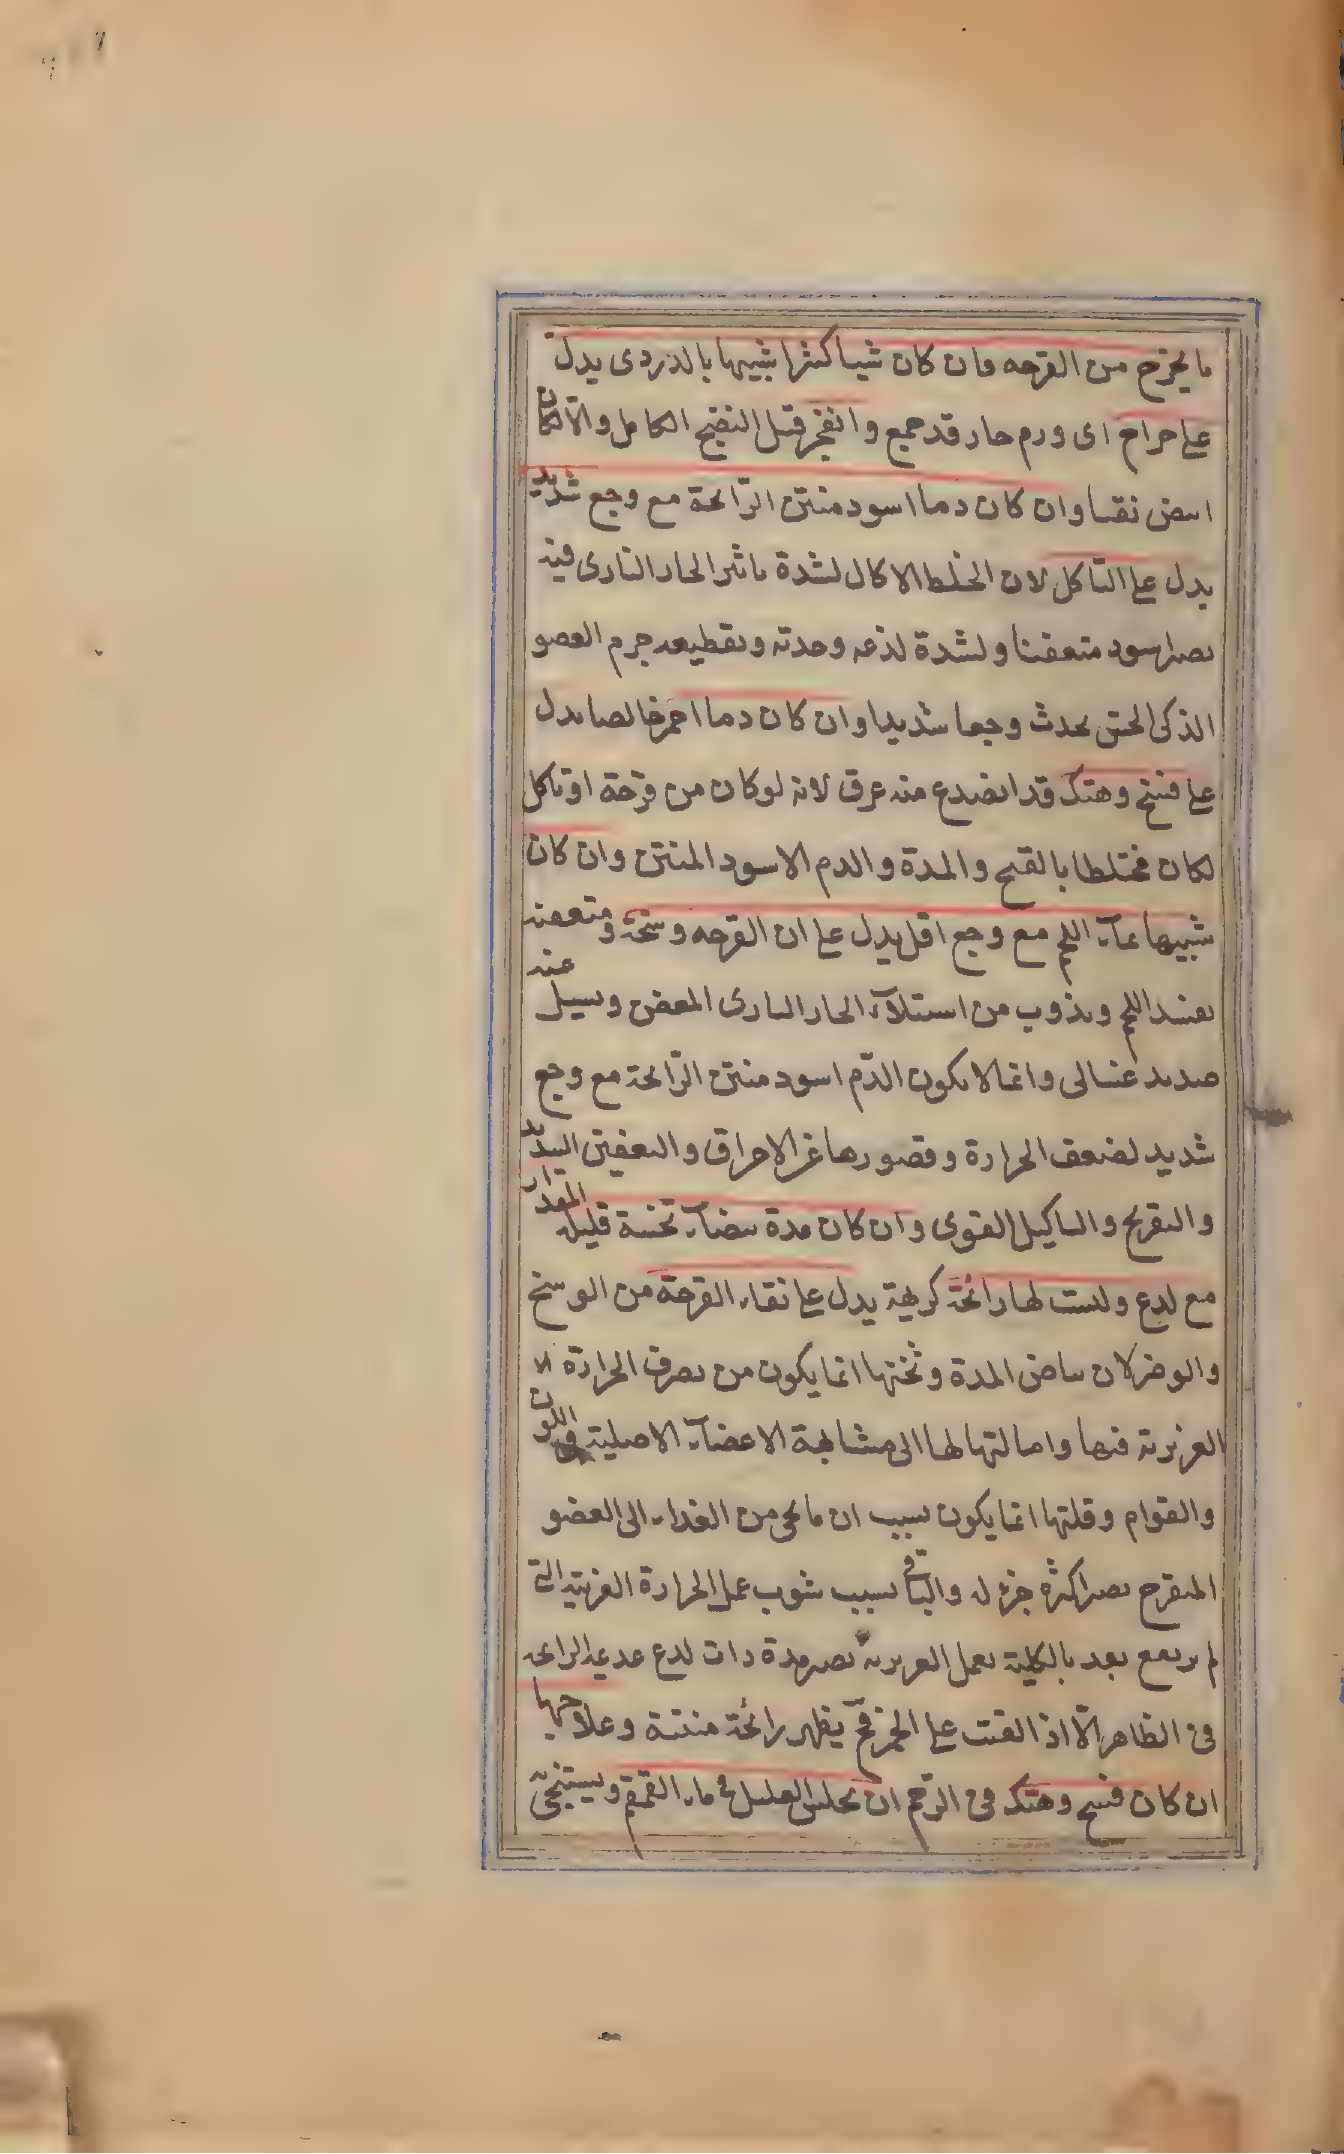 ما يخرج من القرحه فان كان شيا كثيرا شبيها بالدردى يدل
على خراج اى ورم حار قد جمع وانفجر قبل النضج الكامل والا لكان
ابيض نقيا وان كان دما اسود منتن الرّائحة مع وجع شديد
يدل على التاكل لان الخلط الاكال لشدة تاثير الحار النارى فيه
يصير اسود متعفنا ولشدة لذعه وحدته وتقطيعه جرم العضو
الذكى الحس يحدث وجعا شديدا وان كان دما احمر خالصا يدل
على فسخ وهتك قد انصدع منه عرق لانه لو كان من قرحة او تاكل
لكان مختلطا بالقيح والمدة والدم الاسود المنتن وان كان
شبيها بمآء اللحم مع وجع اقل يدل على ان القرحه وسخة ومتعفنه
يفسد اللحم ويذوب من استيلآء الحار النارى المعفن ويسيل عنه
صديد غسالى وانما لا يكون الدّم اسود منتن الرّائحة مع وجع
شديد لضعف الحرارة وقصورها عن الاحراق والتعفين الشديد
والتقريح والتاكيل القوى وان كان مدة بيضآء ثخينة قليلة المقدار
مع لدع وليست لها رائحة كريهة يدل على نقاء القرحة من الوسخ
والوضر لان بياض المدة وثخنها انما يكون من تصرف الحرارة
الغريزية فيها واحالتها لها الى مشابهة الاعضآء الاصلية فى اللون
والقوام وقلتها انما يكون بسبب ان ما يجى من الغداء الى العضو
المتقرح يصير اكثره جزء له والباقى بسبب شوب عمل الحرارة الغريبة التى
لم يرتفع بعد بالكلية بعمل الغريزية يصير مدة ذات لدع عديمة الرائحه
فى الظاهر الّا اذا القيت على الجمر فح يظهر رائحة منتنة وعلاجها
ان كان فسخ وهتك فى الرّحم ان يجلس العليل فى ماء القمقم ويستنجى